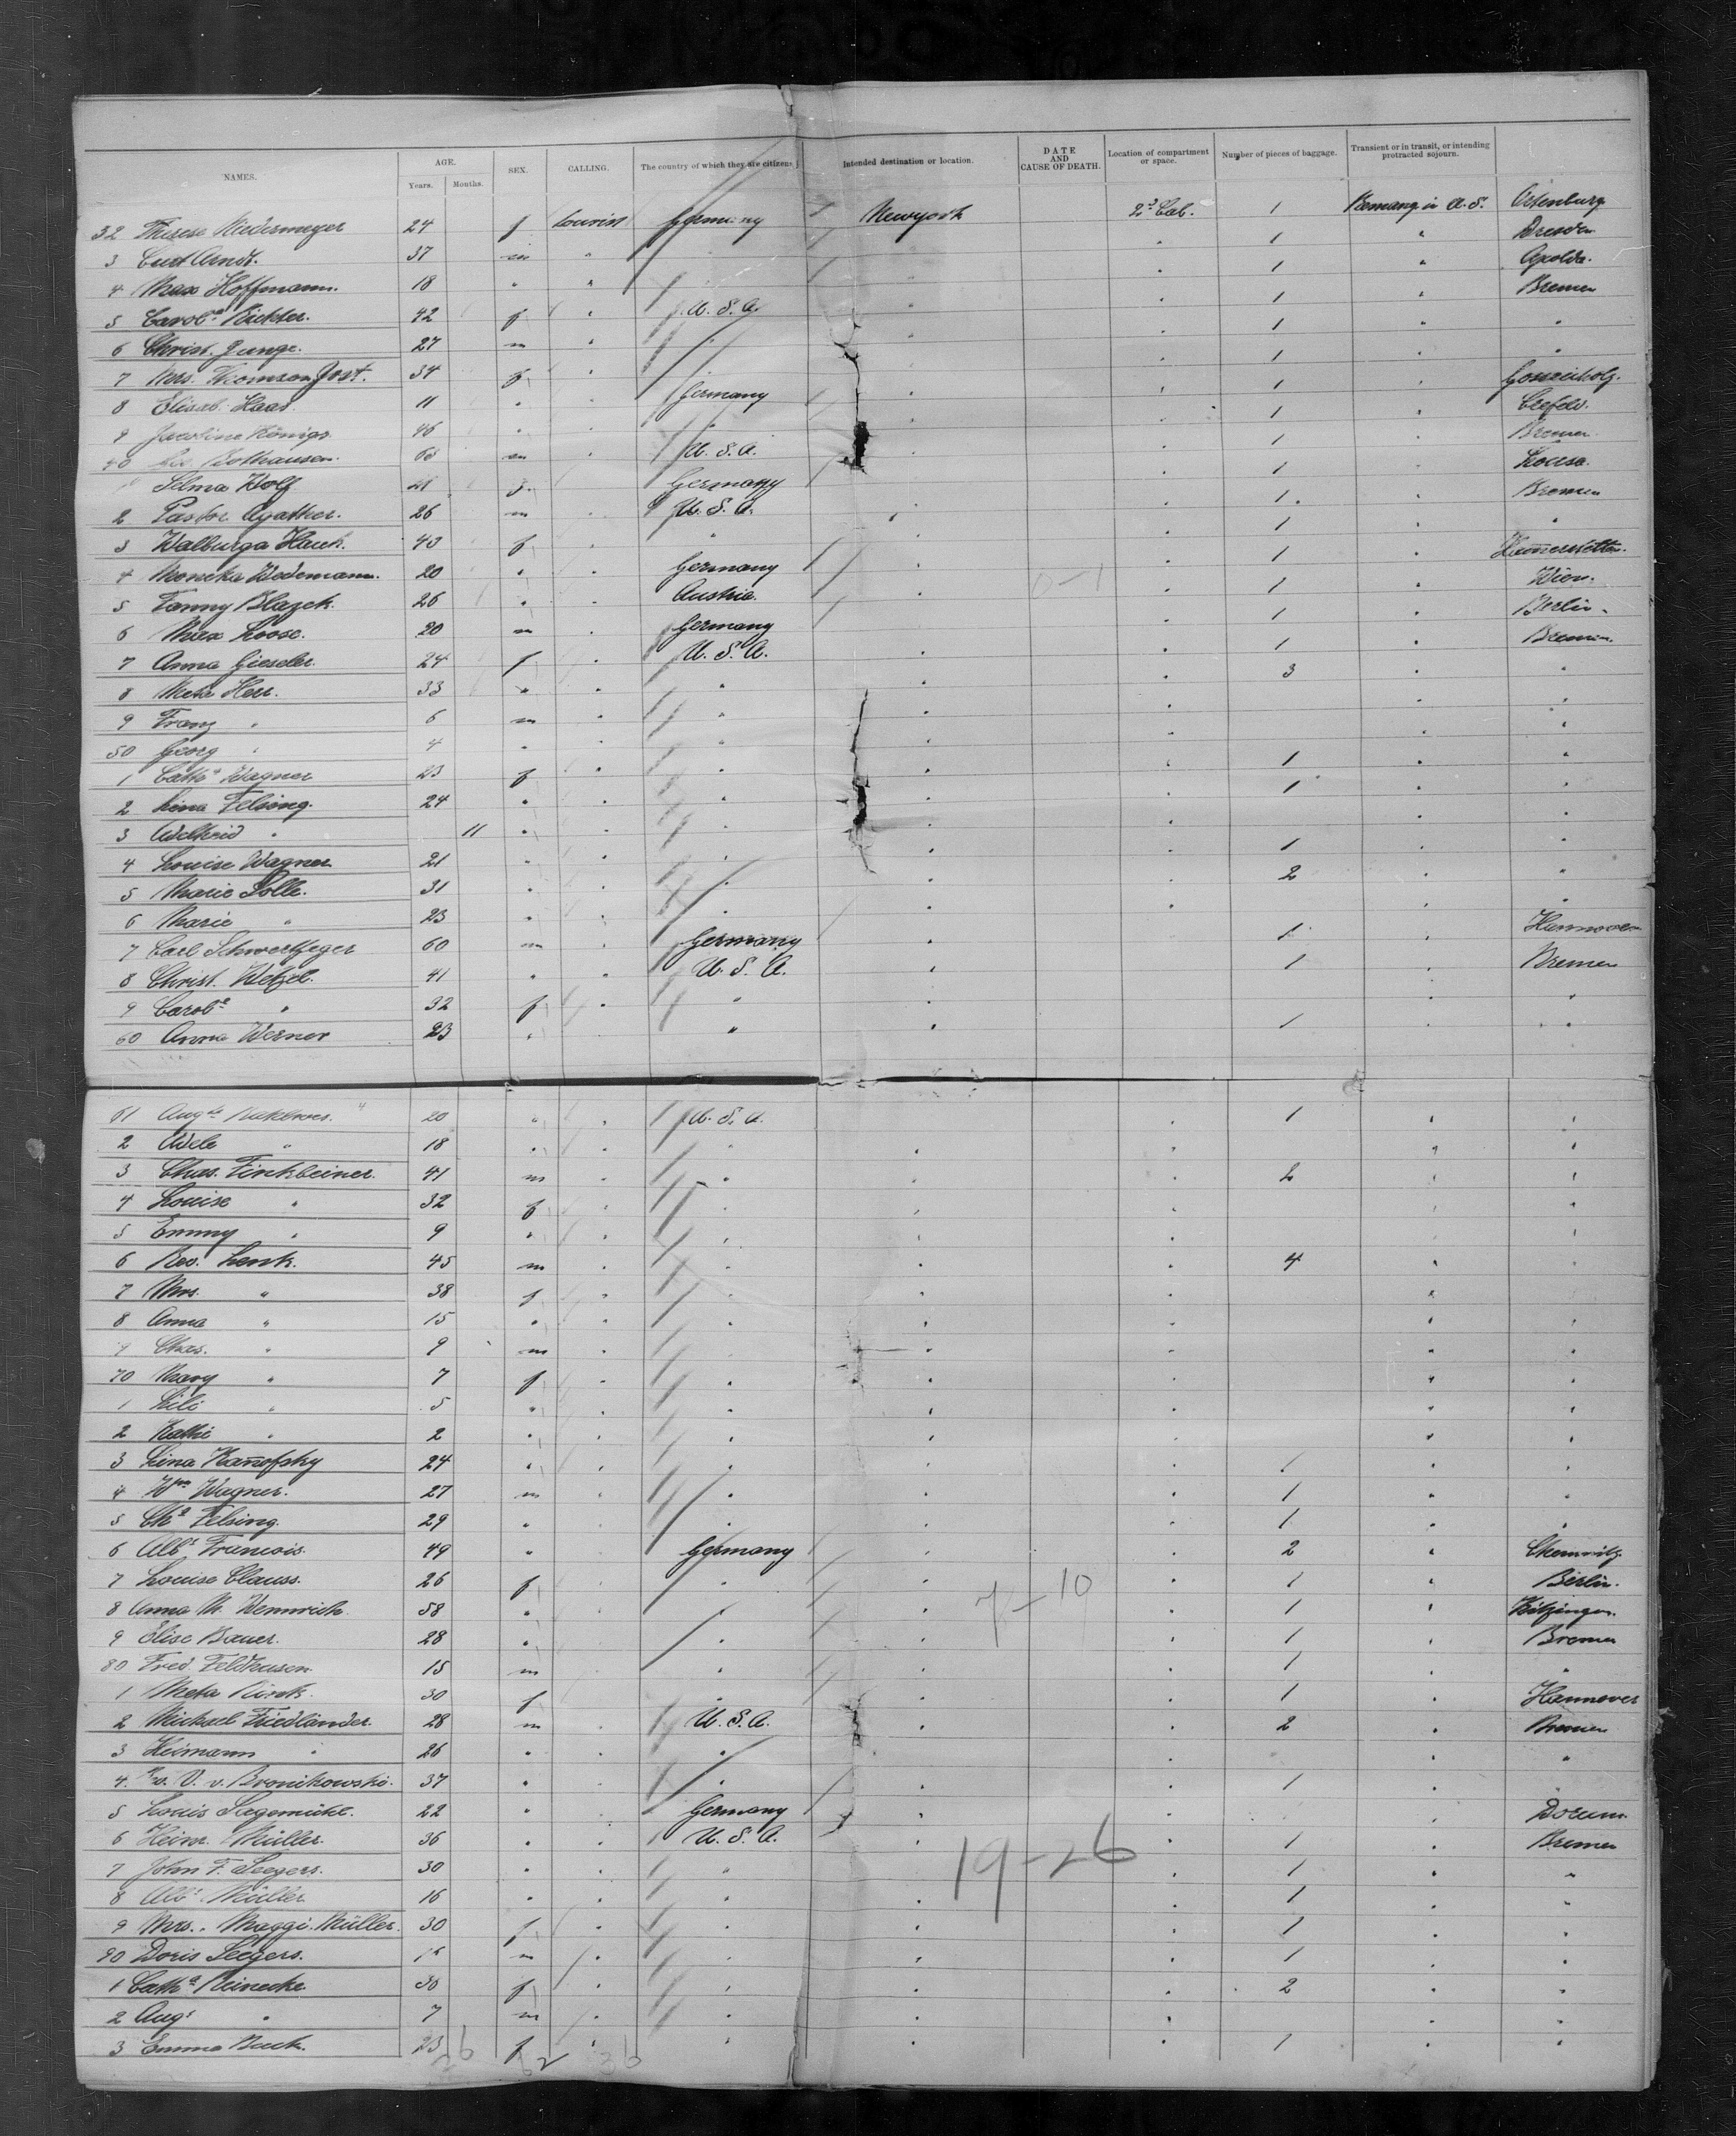 NAMES. AGE. SEX. CALLING. The country of which they are citizens. Intended destination or location. DATE AND CAUSE OF DEATH. Location of compartment or space. Number of pieces of baggage. Transient or in transit, or intending protracted sojourn.
Years. Months.
32 Therese Niedermeyer 24 f Tourist Germany Newyork 2d Cab. 1 in U.S.
3 Curt Arndt. 37 m " " 1 " Dresden
4 Max Hoffmann. 18 " " " 1 " Apolda.
5 Carole Richter. 42 f " U.S.A. " 1 " Bremen
6 Christ. Junge. 27 m " " 1 " "
7 Mrs. Thomson Jost. 34 f " 1 "
8 Elisab. Haas. 11 " " Germany " 1 "
9 Jacobine Königs. 46 " " " 1 " Crefeld.
40 Bolhausen. 68 m " U.S.A. " 1 " Bremen
Selma Wolf 21 f. Germany 1
2 Pastor Agather. 26 m " U.S.A. " 1 " Bremen
3 Walburga Hauk. 40 f " " " 1 " "
4 Monika Wedemann. 20 " " Germany " 1 "
5 Fanny Blazek. 26 " " Austria. " 0-1 1 " Wien.
6 Max Loose. 20 m " Germany 1 " Berlin.
7 Anna Gieseler 24 f " U.S.A. " 1 " Bremen.
8 Meta Herr. 33 " " " " 3 " "
9 Franz " 6 m " " " " "
50 Georg " 4 " " " " " "
1 Catha Wagner 23 f " " 1 " "
2 Lina Felsing. 24 " " " 1 "
3 Adelheid " 11 " " " "
4 Louise Wagner 21 " " " " 1 " "
5 Marie Solle. 31 " " " 2 " "
6 Marie " 23 " " " " "
7 Carl Schwertfeger 60 m " Germany " 1 " Hannover
8 Christ. Wetzel. 41 " " U.S.A. " 1 " Bremen
9 Carole " 32 f " " " " "
60 Anna Werner 23 " " " 1 " "
61 Augte 20 " " U.S.A. 1 " "
2 Adele " 18 " " " " " "
3 Chas. Finkbeiner. 41 m " " 2 " "
4 Louise " 32 f " " " " "
5 Emmy " 9 " " " " "
6 Rev. Lenk. 45 m " " " 4 "
7 Mrs. " 38 f " " " "
8 Anna " 15 " " " " " "
9 Chas. " 9 m " " " " "
70 Mary " 7 f " " " " "
1 Lili " 5 " " " " " "
2 Kathi " 2 " " " " "
3 Lina Kanofsky 24 " " " 1 " "
4 Wm Wagner. 27 m " " 1 " "
5 Chs Felsing. 29 " " 1 " "
6 Albt Francois. 49 " Germany " 2 " Chemnitz
7 Louise Clauss. 26 f " " " 1 " Berlin.
8 Anna M. Wennrich. 58 " " " 7-10 1 " Kitzingen.
9 Elise Bauer. 28 " " " 1 " Bremen
80 Fred Feldhusen 15 m " " 1 "
1 Meta 30 f " " 1 " Hannover
2 Michael Friedländer. 28 m " U.S.A. " 2 " Bremen
3 Heimann " 26 " " " " "
4. V. v. Bronikowski. 37 " " " 1 "
5 Louis Sagemühl. 22 " " Germany " " Dorum.
6 Heinr. Müller. 36 " " U.S.A. " 1 " Bremen
7 John F. Seegers. 30 " " " 19-26 1 " "
8 Albt Müller 16 " " " 1 " "
9 Mrs. Maggi. Müller. 30 f " " " 1 " "
90 Doris Seegers. m " " " 1 " "
1 Catha Reinecke. 30 f " " " 2 " "
2 Augt " 7 m " " " " "
3 Emma Buck. 23 f " " " 1 " "